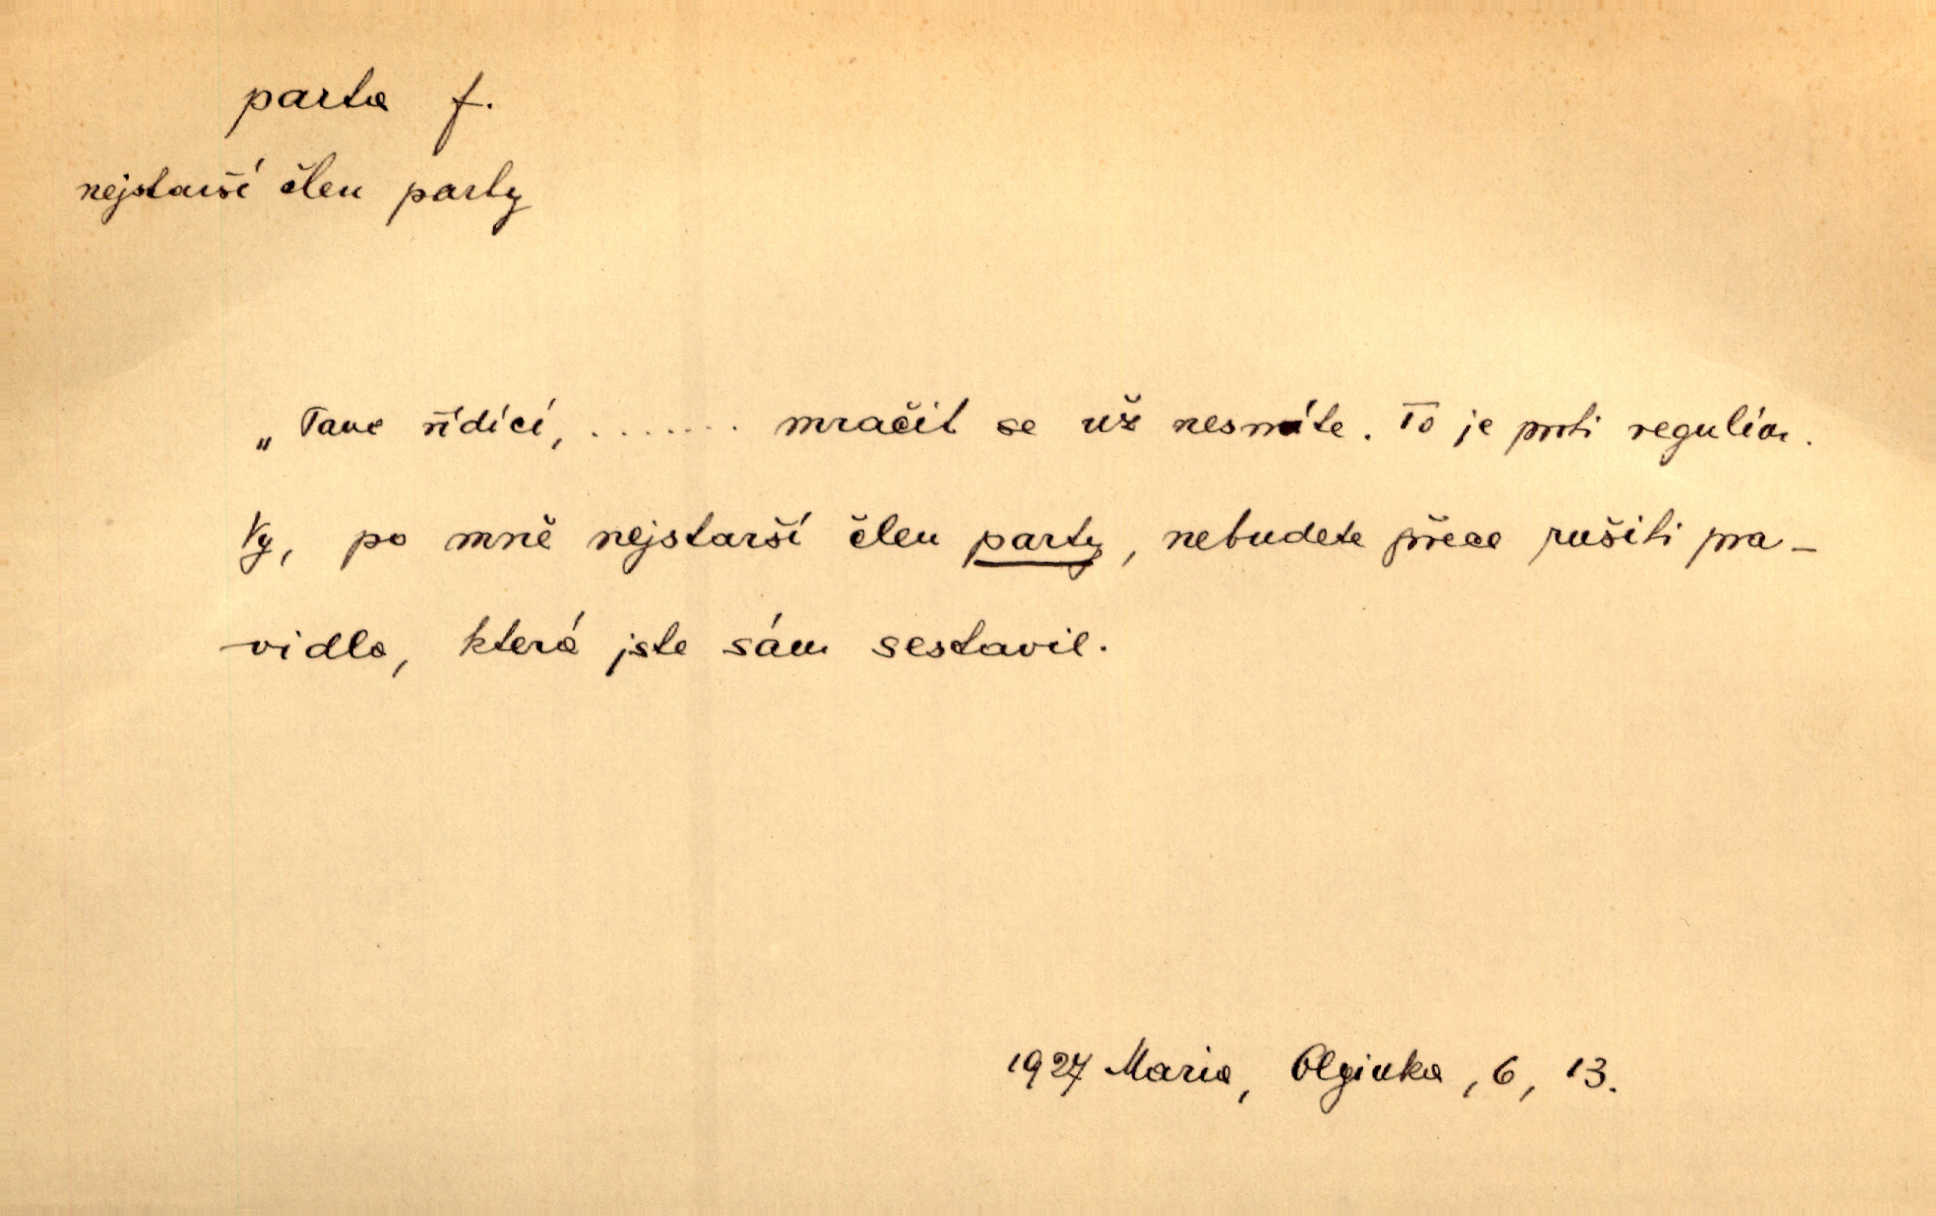 parta f.
nejstarší člen party
„Pane řídící, ....... mračit se už nesmíte. To je proti regulím.
Vy, po mně nejstarší člen party, nebudete přece rušiti pra-
vidla, která jste sám sestavil.
1927 Maria, Olginka, 6, 13.